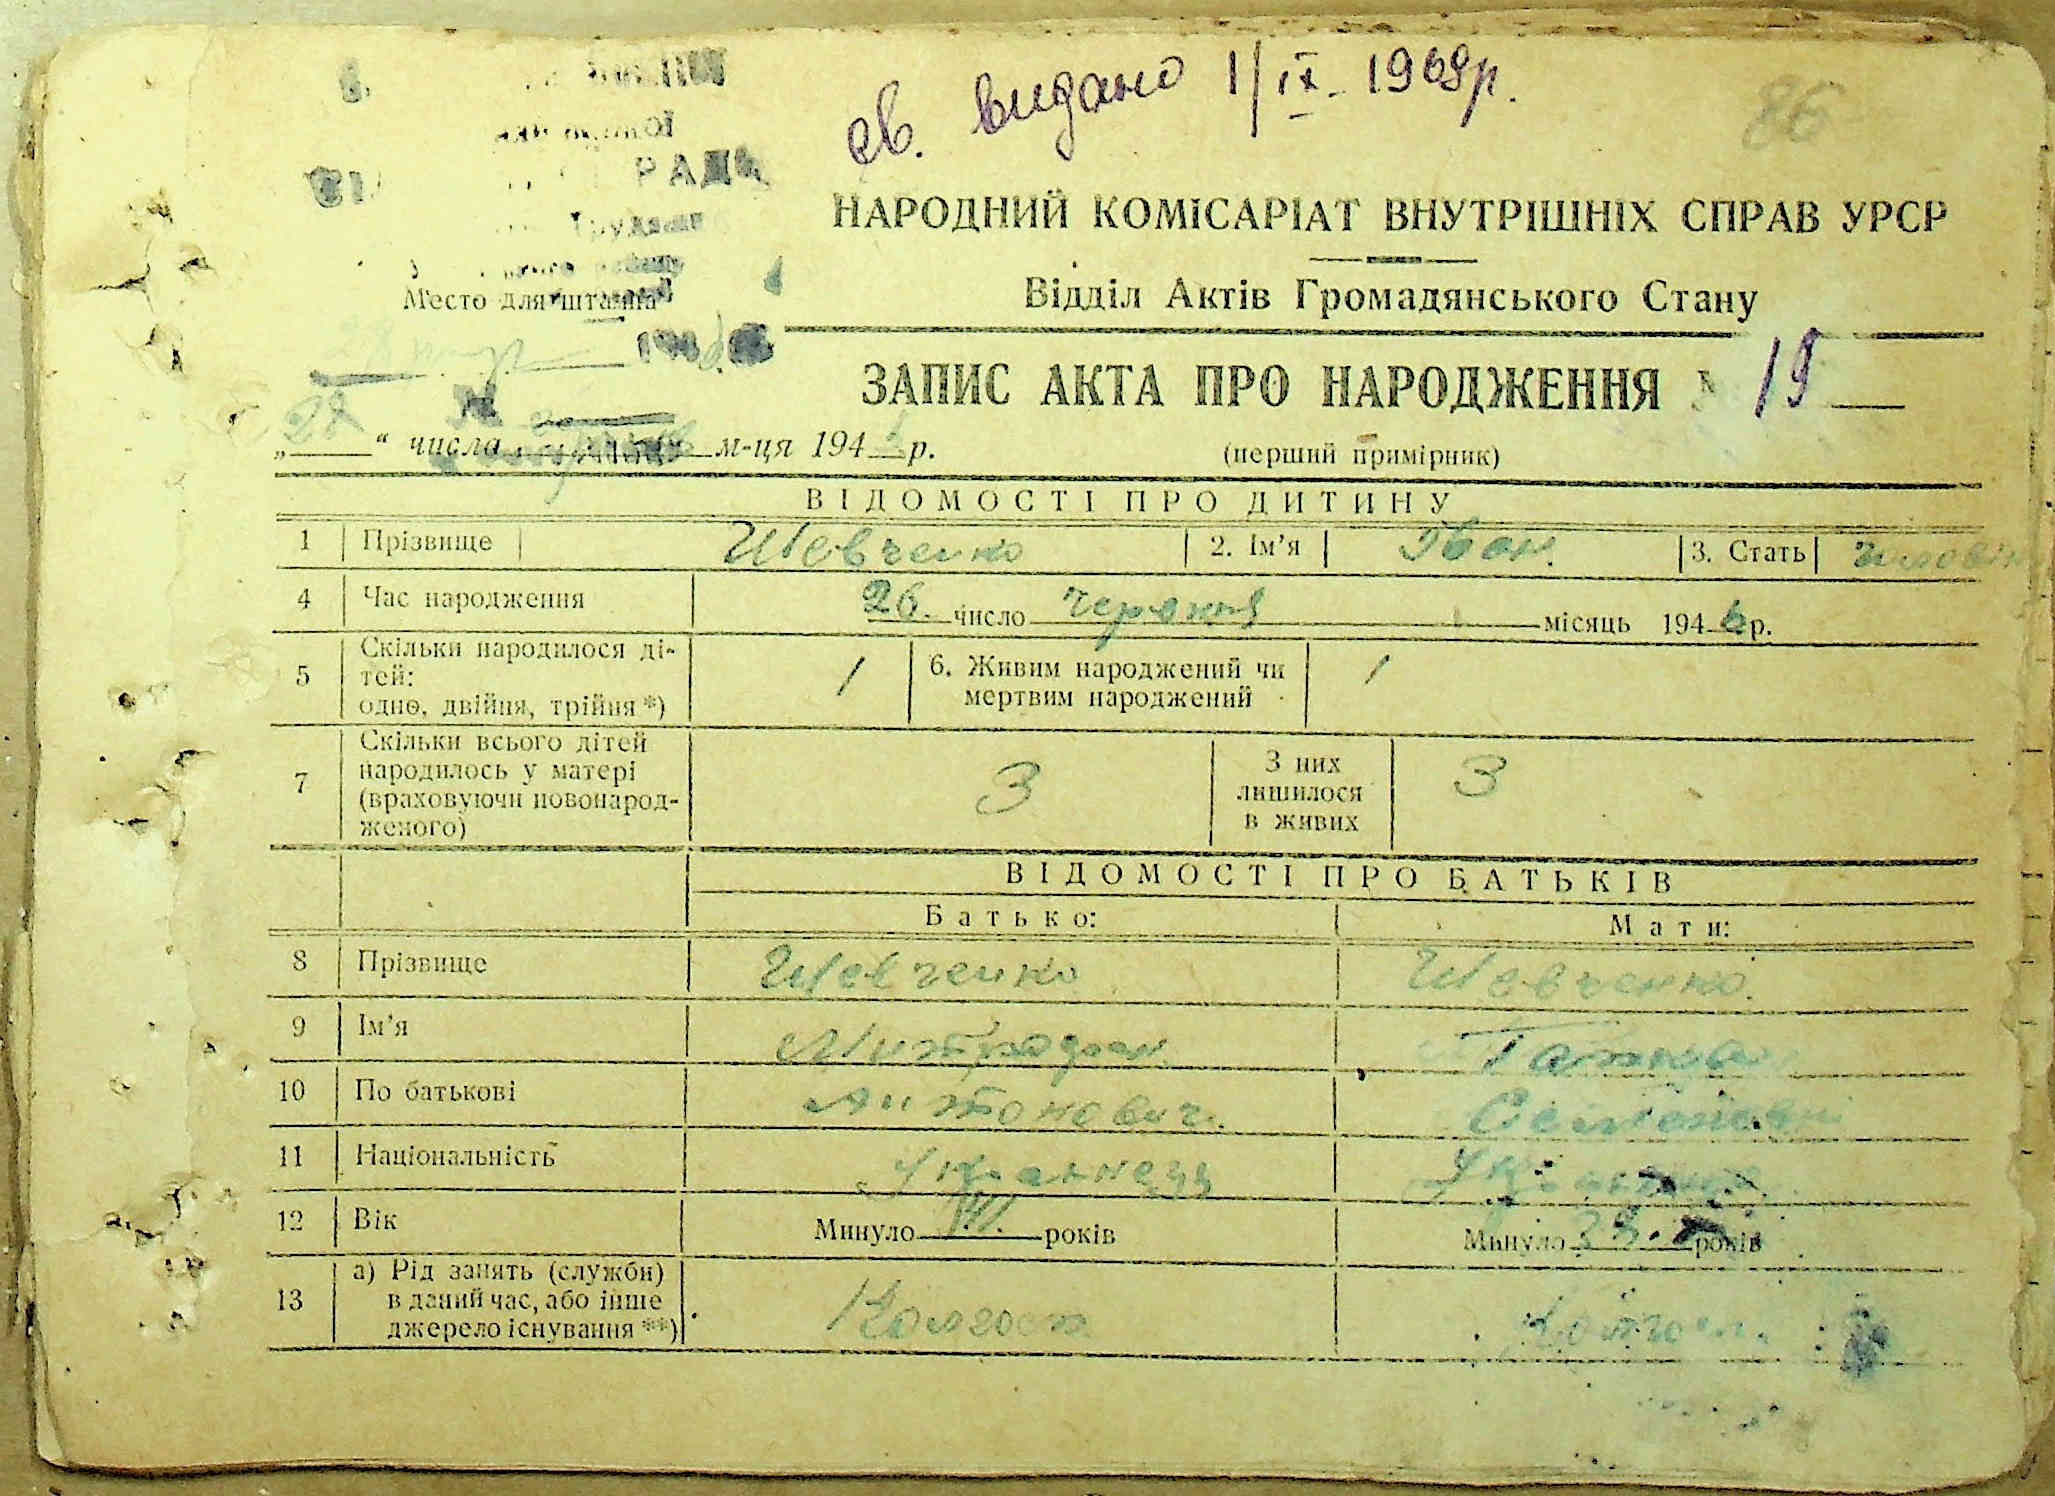 св. видано 1/IX. 1969р.
86
РАДА
НАРОДНИЙ КОМІСАРІАТ ВНУТРІШНІХ СПРАВ УРСР
Відділ Актів Громадянського Стану
Место для штампа
194
ЗАПИС АКТА ПРО НАРОДЖЕННЯ № 19
„28“ числа м-ця 194 р.
(перший примірник)
ВІДОМОСТІ ПРО ДИТИНУ
1 Прізвище Шевченко 2. Ім'я Іван. 3. Стать чоловіч
4 Час народження 26. число червня місяць 1946 р.
5 Скільки народилося ді-
тей:
одно, двійня, трійня *) 1
6. Живим народжений чи
мертвим народжений 1
7 Скільки всього дітей
народилось у матері
(враховуючи новонарод-
женого) 3
З них
лишилося
в живих 3
ВІДОМОСТІ ПРО БАТЬКІВ
Батько: Мати:
8 Прізвище Шевченко Шевченко.
9 Ім'я Митрофан Ганна
10 По батькові Антонович.
11 Національність Українець Українка
12 Вік Минуло років Минуло років
13 а) Рід занять (служби)
в даний час, або інше
джерело існування **) Колгосп Колгосп.